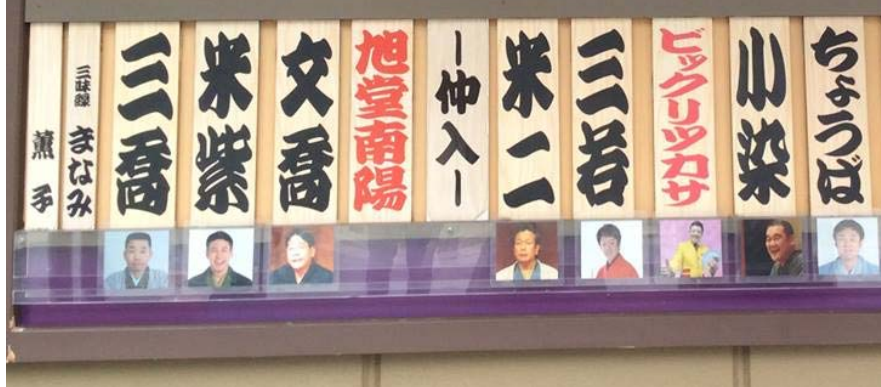 ちょうば
小染
ビックリツカサ
三若
米二
ー仲入ー
旭堂南陽
文喬
米紫
三喬
三味線 まなみ
薫子